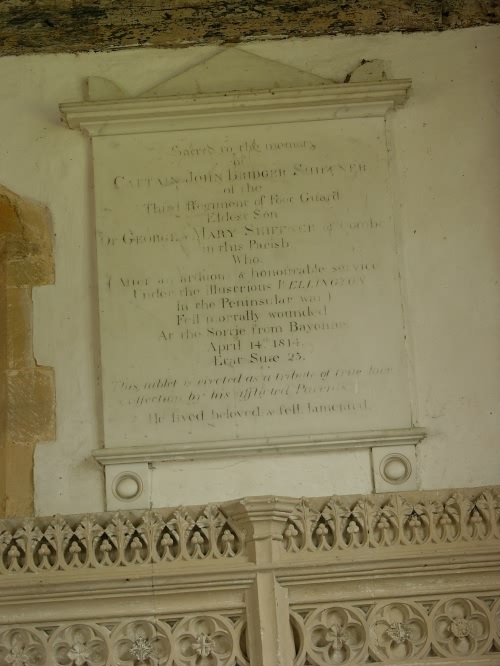 Sacred to the memory
of
CAPTAIN JOHN BRIDGER SHIFFNER
of the
Third Regiment of Foot Guards
Eldest Son
OF GEORGE & MARY SHIFFNER of Coombe
in this Parish.
Who,
(After an arduous & honourable service
Under the illustrious WELLINGTON
In the Peninsular war)
Fell mortally wounded
At the Sortie from Bayonne
April 14th 1814.
Etat Suæ 25.
This tablet is erected as a tribute of true love
& affection by his afflicted Parents
He lived beloved & fell lamented.